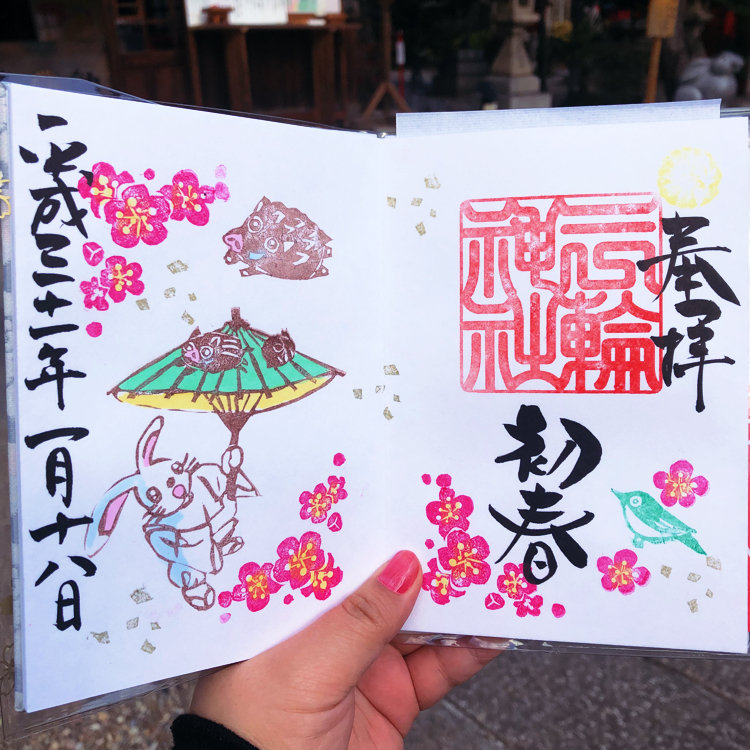 奉拝
三輪
神社
初春
平成三十一年一月十八日